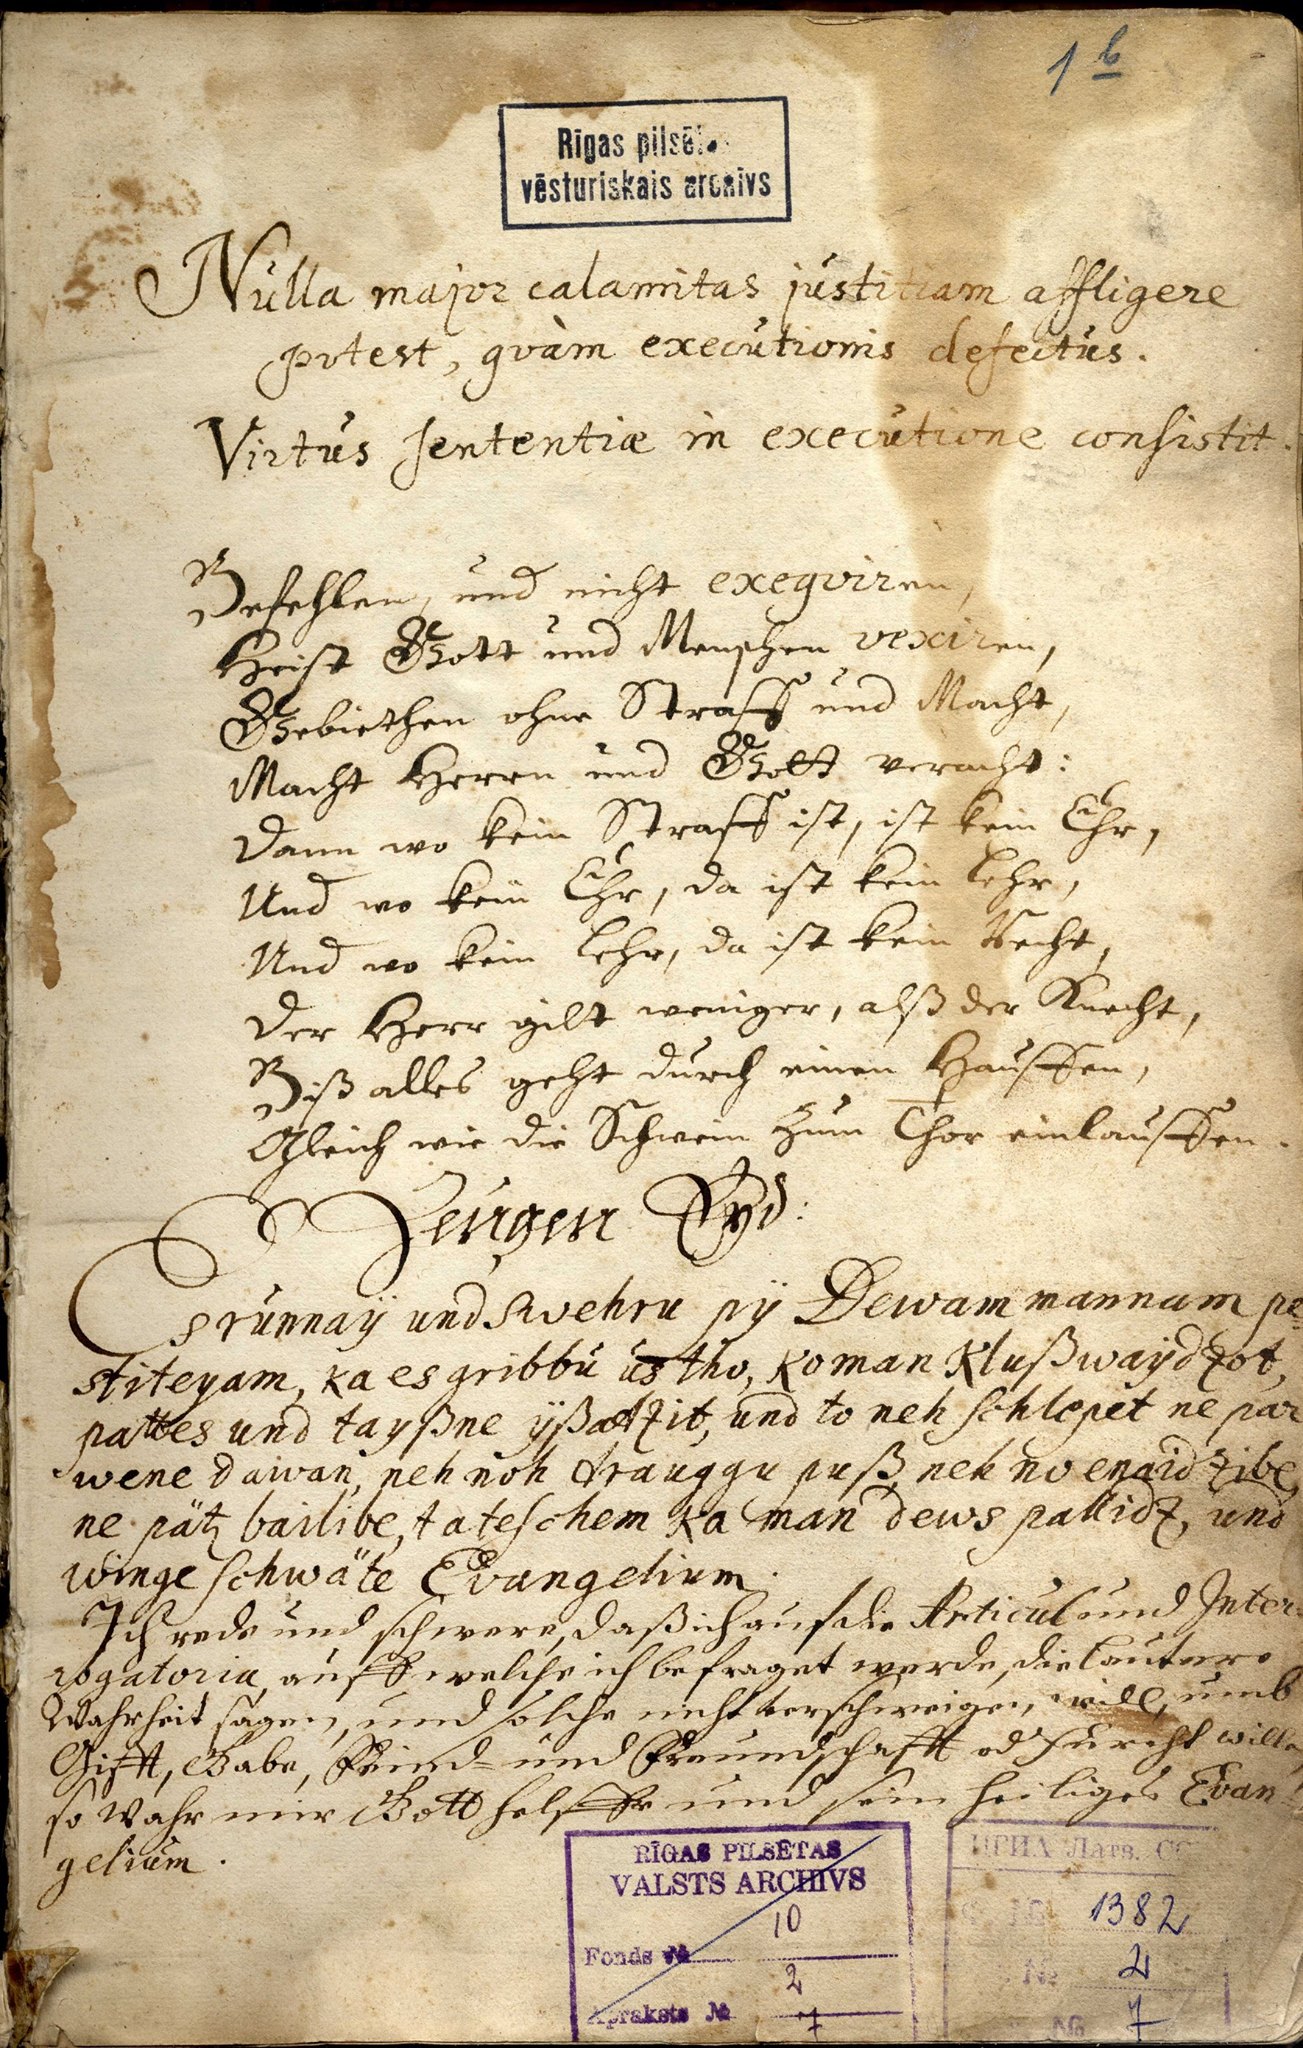 1 b
Rīgas pilsēt
vēsturiskais archivs
Nulla major calamitas justitiam affligere
potest, qvàm executionis defectus.
Virtus sententiæ in executione consistit.
Befehlen, und nicht exeqviren,
Heist Gott und Menschen vexiren,
Gebiethen ohne Straff und Macht,
Macht Herrn und Gott veracht:
Dann wo kein Straff ist, ist kein Ehr,
Und wo kein Ehr, da ist kein Lehr,
Und wo kein Lehr, da ist kein Recht,
Der Herr gilt weniger, alß der Knecht,
Biß alles geht durch einen Hauffen,
Gleich wie die Schwein zum Thor einlauffen.
Zeugen Eyd:
Es runnaÿ und swehru pÿ Dewam mannam pe-
stiteyam, ka es gribbu us tho, ko man klußwaÿdzot,
pattes und tayßne ÿßatzit, und to neh schlepet ne par
wene dawan, neh noh drauggu puß, neh no enaidzibe,
ne pätz bailibe, tateschem ka man dews pallidz, und
winge schwäte Evangelium.
Ich rede und schwere, daß ich auf die Articul und Inter-
rogatoria, auff welche ich befraget werde, die lautere
Wahrheit sagen, und solche nicht verschweigen, will, umb
Gifft, Gabe, Feind- und Freundschafft od Furcht willen,
so wahr mir Gott helffe und sein heiliges Evan-
gelium.
RĪGAS PILSĒTAS
VALSTS ARCHIVS
Fonds № 10
Apraksts № 2
7
ЦГИА Латв. СС
Ф. № 1382
№ 2
№ 7